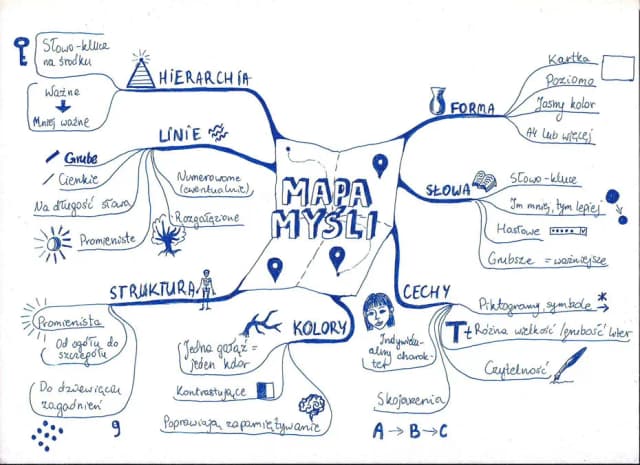 MAPA
MYŚLI
HIERARCHIA
Słowo-klucz
na środku
Ważne
Mniej ważne
LINIE
Grube
Cienkie
Na długość słowa
Promieniste
Numerowane
(ewentualnie)
Rozgałęzione
STRUKTURA
Promienista
Od ogółu do
szczegółu
Do dziewięciu
zagadnień
9
KOLORY
Jedna gałąź =
jeden kolor
Kontrastujące
Poprawiają zapamiętywanie
FORMA
Kartka
Poziomo
Jasny kolor
A4 lub więcej
SŁOWA
Słowo-klucz
Im mniej, tym lepiej
Hasłowe
Grubsze = ważniejsze
CECHY
Piktogramy symbole *
Tt Różna wielkość /grubość liter
Czytelność
Indywidu-
alny charak-
ter
Skojarzenia
A → B → C